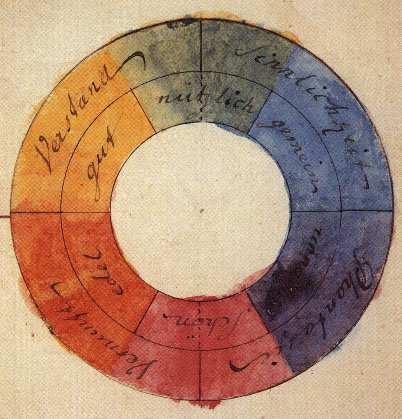 Verstand
Sinnlichkeit
Phantasie
Vernunft
gut
nützlich
gemein
schön
edel